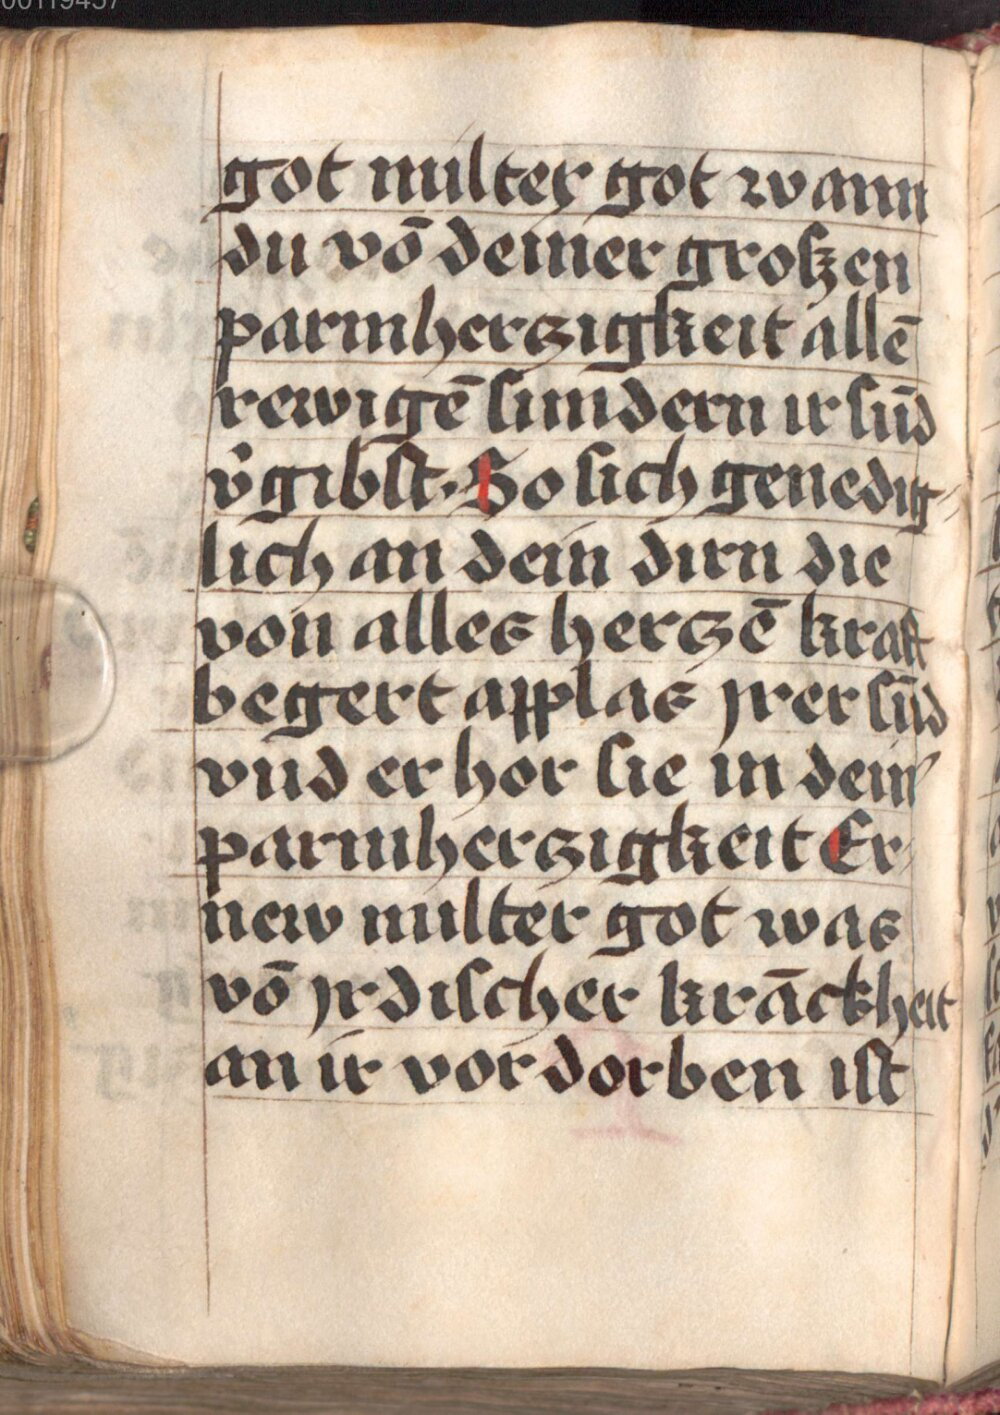 got milter got wann
du vō deiner groszen
parmherczigkeit allē
rewigē sundern ir sūd
v̉gibst. So sich genedig-
lich an dein dirn die
von alles herczē kraft
begert applas jrer sūd
vnd er hor sie in dein̉
parmherczigkeit Er-
new milter got was
vō jrdischer krāckheit
an ir vordorben ist